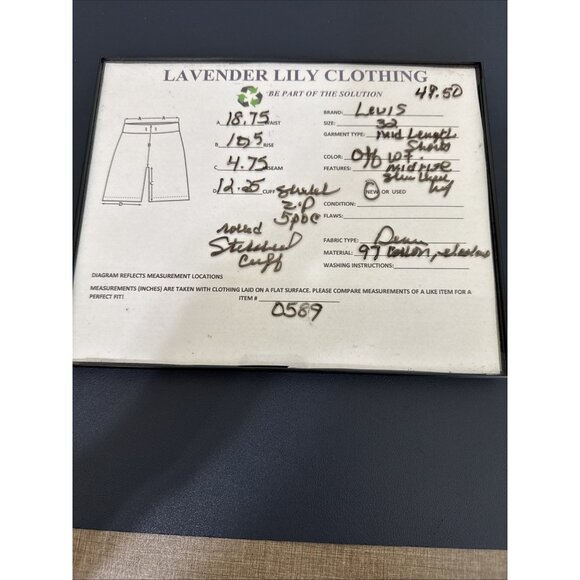 LAVENDER LILY CLOTHING
BE PART OF THE SOLUTION
49.50
A 18.75 WAIST
B 10.5 RISE
C 4.75 INSEAM
D 12.25 CUFF
Stretch
zip
5poc
rolled
Stitched
Cuff
A A
B
C
D
BRAND: Levis
SIZE: 32
GARMENT TYPE: Mid Length
Shorts
COLOR: Off wt.
FEATURES: midrise
NEW OR USED
CONDITION:
FLAWS:
FABRIC TYPE: Denim
MATERIAL: 97 Cotton, elastane
WASHING INSTRUCTIONS:
DIAGRAM REFLECTS MEASUREMENT LOCATIONS
MEASUREMENTS (INCHES) ARE TAKEN WITH CLOTHING LAID ON A FLAT SURFACE. PLEASE COMPARE MEASUREMENTS OF A LIKE ITEM FOR A
PERFECT FIT! ITEM # 0589